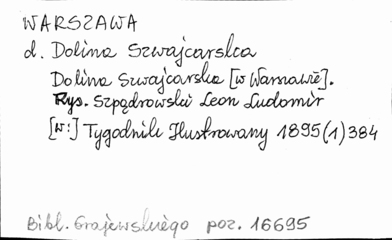 WARSZAWA
d. Dolina Szwajcarska
Dolina Szwajcarska [w Warszawie].
Rys. Szpądrowski Leon Ludomir
[w:] Tygodnik Ilustrowany 1895(1)384
Bibl. Grajewskiego poz. 16695